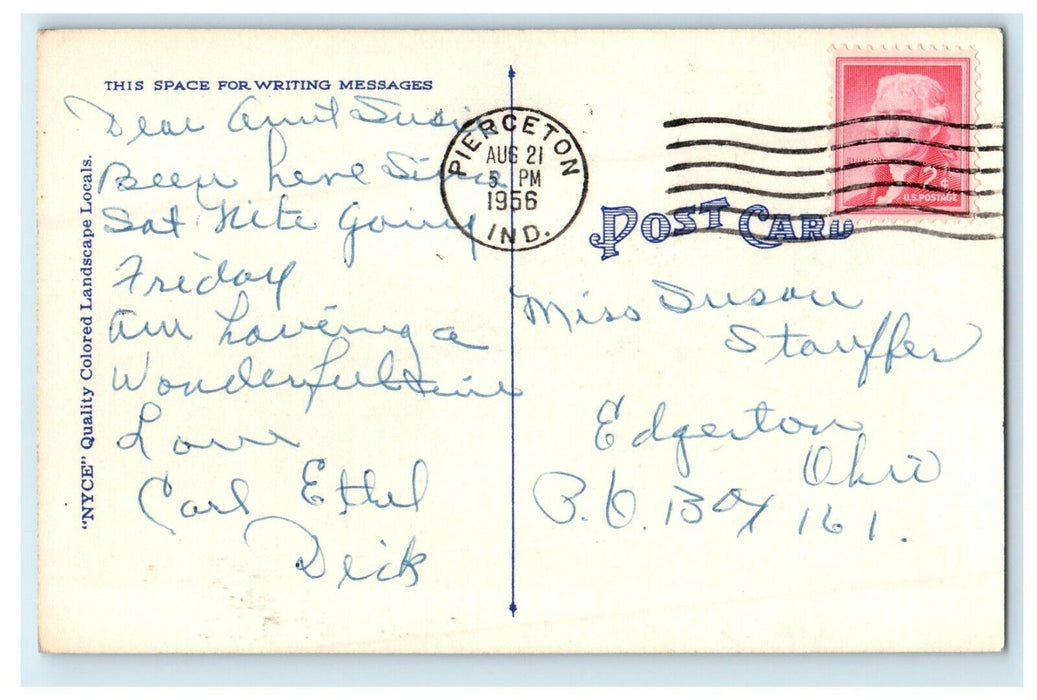 THIS SPACE FOR WRITING MESSAGES
Dear Aunt Susie
Been here Since
Sat Nite Going
Friday
am having a
Wonderful time
Love
Carl Ethel
Dick
"NYCE" Quality Colored Landscape Locals.
PIERCETON
AUG 21
5 PM
1956
IND.
JEFFERSON
2¢
U.S. POSTAGE
POST CARD
Miss Susan
Stauffer
Edgerton
Ohio
P.O. Box 161.